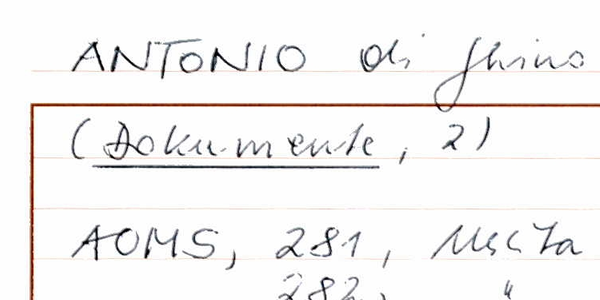 ANTONIO di Ghino
(Dokumente, 2)
AOMS, 281, Uscita
282, "